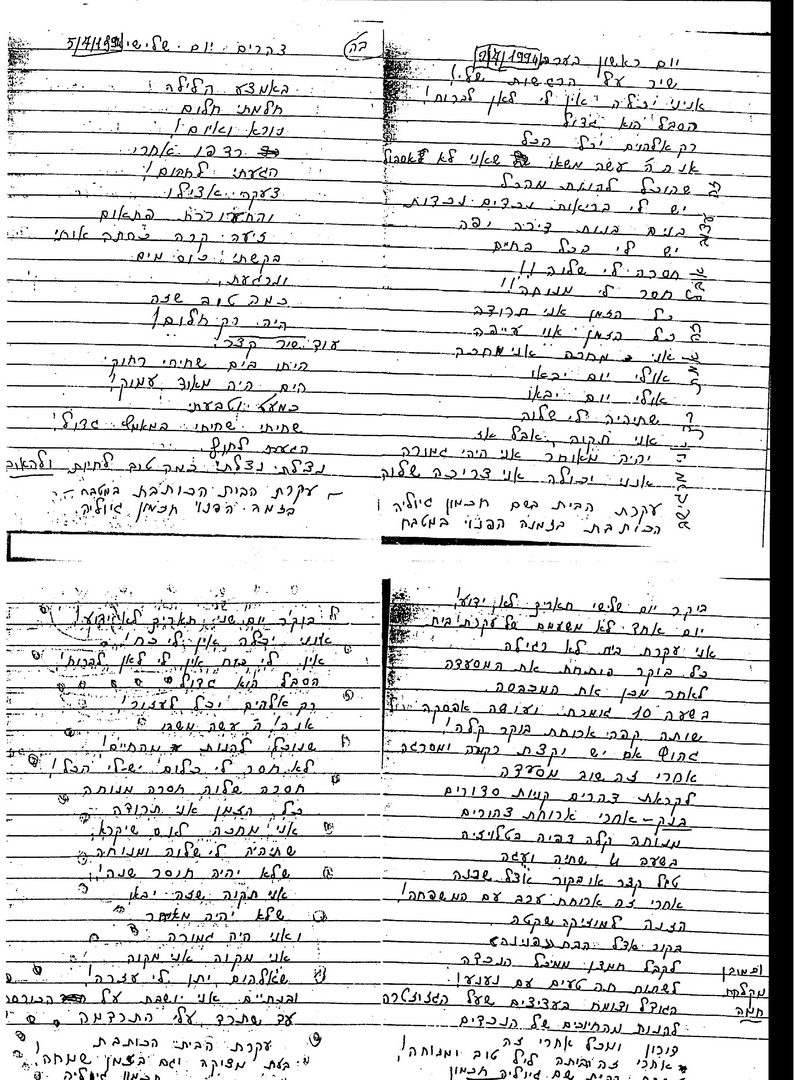 יום ראשון בערב 3/7/1994
שיר על הרגשות שלי!
אינני יכולה אין לי לאן לברוח!
הסבל הוא גדול
רק אלהים יכל הכל
אנא ה' עשה משהו שאני לא אסבול
שאוכל להנות מהכל
יש לי בריאות נכדים נכדות
בנים בנות דירה יפה
יש לי הכל בחיים
חסרה לי שלוה!!
חסר לי מנוחה!!
כל הזמן אני חרודה
כל הזמן אני עייפה
אני מחכה אני מחכה
אולי יום יבאו
אולי יום יבאו
שתיהיה לי שלוה
אני תקוה, אבל אז
יהיה מאוחר אני היהי גמורה
אינני יכולה אני צריכה שלוה
עקרת הבית בשם חכמון ג'וליה
הכותבת בזמנה הפנוי במטבח
בה
צהרים יום שלישי 5/7/1994
באמצע הלילה!
חלמתי חלום
נורא ואיום!
רדפו אחרי
הגעתי לתהום!
צעקתי אצילו
והתעוררתי פתאום
זיעה קרה כסתה אותי
בקשתי כוס מים
ונרגעתי
כמה טוב שזה
היה רק חלום!
עוד שיר קצר
הייתי בים שחיתי רחוק
הים היה מאוד עמוק!
כמעט וטבעתי
שחיתי שחיתי במאמץ גדול!
הגעתי לחוף
נצלתי נצלתי כמה טוב לחיות ולהאוב
עקרת הבית הכותבת במטבח
בזמנה הפנוי חכמון ג'וליה
ביקר יום שלישי תאריך לא ידוע!
יום אחד לא משעמם של עקרת בית
אני עקרת בית לא רגילה
כל בוקר פותחת את המסעדה
לאחר מכן את המכבסה
בשעה 10 גומרת ועושה אפסקה
שותה קפה ארוחת בוקר קלה!
גהוץ אם יש וקצת רקמה ומסרגה
אחרי זה שוב מסעדה
לקראת צהרים קניות סדורים
בנק – אחרי ארוחת צהורים
מנוחה קלה צפיה בטלויזיה
בשעה 4 שתיה ועגה
טיול קצר או בקור אצל שכנה
אחרי זה ארוחת ערב עם המשפחה!
הזנה למוזיקה שקטה
בקור אצל הבת
לקבל חמדן ממיכל הנכדה
לשתות תה טעים עם נענע!
הגודל וצומח בעציצים שעל הגזוזטרה
להנות מהחיוכים של הנכדים
ומובן
מקלחת
חמה
אחרי זה
אחרי זה הביתה ליל טוב ומנוחה!
בוקר יום שני תאריך לא ידוע!
אינני יכלה אין לי כח!
אין לי כוח אין לי לאן לברוח!
הסבל הוא גדול
רק אלהים יכל לעזור!
אנא ה' עשה משהו
שאוכל להנות מהחיים!
לא חסר לי כלום יש לי הכל!
חסרה שלוה חסרה מנוחה
כל הזמן אני חרודה
אני מחכה ליום שיקרא
שתיהיה לי שלוה ומנוחה
שלא יהיה חוסר שנה!
אני תקוה שזה יבא
שלא יהיה מאוחר
ואני היה גמורה
אני מקוה אני מקוה
שאלהים יתן לי עזרה!
ובנתיים אני יושבת על הכורסה
עד שתרד עלי התרדמה
עקרת הבית הכותבת
בעת מצוקה וגם בזמן שמחה!
חכמון ג'וליה